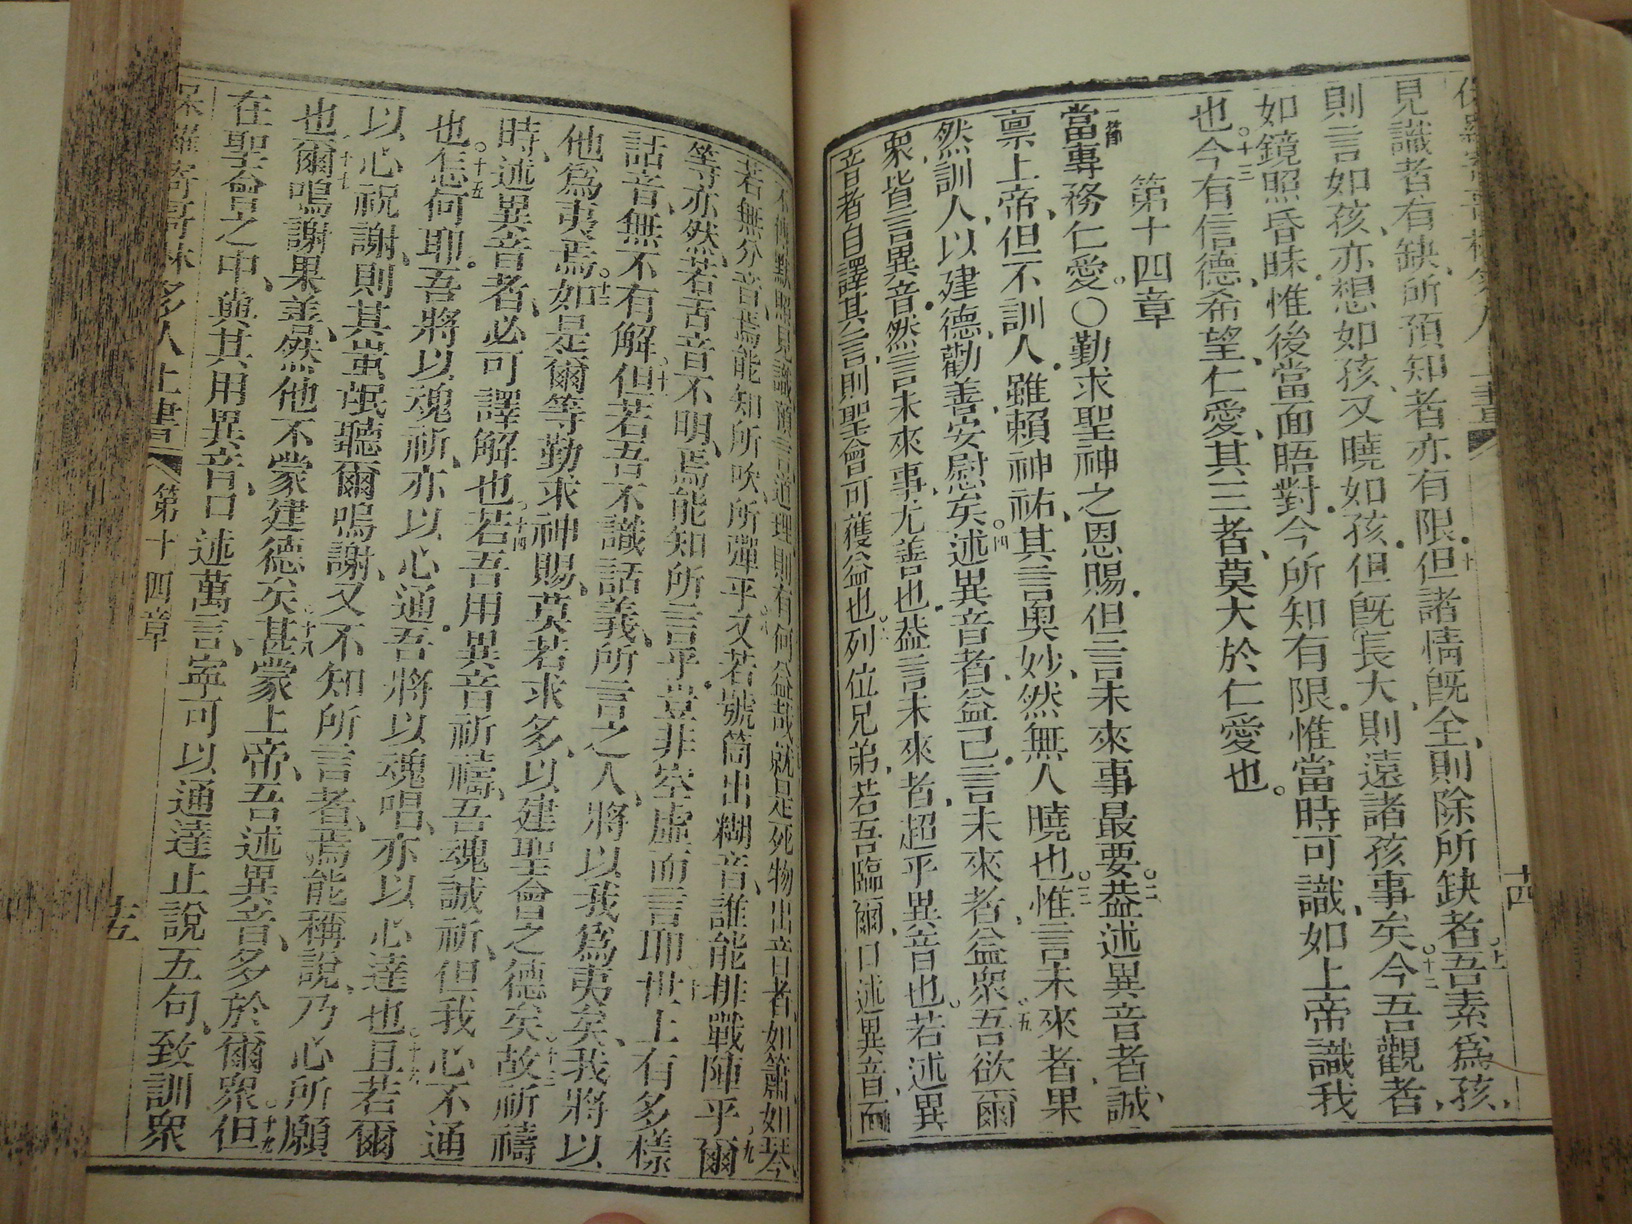 見識者有缺、所預知者亦有限。十但諸情既全、則除所缺者。十一吾素爲孩、
則言如孩、亦想如孩、又曉如孩。但既長大、則遠諸孩事矣。十二今吾觀者、
如鏡照昏昧、惟後當面晤對。今所知有限。惟當時可識、如上帝識我
也。十三今有信德、希望、仁愛、其三者、莫大於仁愛也。
第十四章
一節當專務仁愛。〇勤求聖神之恩賜、但言未來事最要。二蓋述異音者、誠
禀上帝、但不訓人。雖賴神祐、其言奥妙、然無人曉也。三惟言未來者、果
然訓人、以建德、勸善、安慰矣。四述異音者、益己。言未來者、益衆。五吾欲爾
衆、皆言異音。然言未來事、尤善也。蓋言未來者、超乎異音也。若述異
音者、自譯其言、則聖會可獲益也。六列位兄弟、若吾臨爾、口述異音、而
不傳默照見識預言道理、則有何益哉。七就是死物出音者、如簫如琴、
若無分音、焉能知所吹、所彈乎。八又若號筒出糊音、誰能排戰陣乎。九爾
等亦然、若舌音不明、焉能知所言乎。豈非空虛而言耶。十世上有多樣
話音、無不有解。十一但若吾不識話義、所言之人、將以我爲夷矣、我將以
他爲夷焉。十二如是爾等勤求神賜、莫若求多、以建聖會之德矣。十三故祈禱
時、述異音者、必可譯解也。十四若吾用異音祈禱、吾魂誠祈、但我心不通
也。十五怎何耶。吾將以魂祈、亦以心通。吾將以魂唱、亦以心達也。十六且若爾
以心祝謝、則其蚩氓聽爾鳴謝、又不知所言者、焉能稱說、乃心所願
也。十七爾鳴謝果善、然他不蒙建德矣。十八甚蒙上帝、吾述異音、多於爾衆。十九但
在聖會之中、與其用異音、口述萬言、寧可以通達止說五句、致訓衆
保羅寄哥林多人上書 第十四章 十五